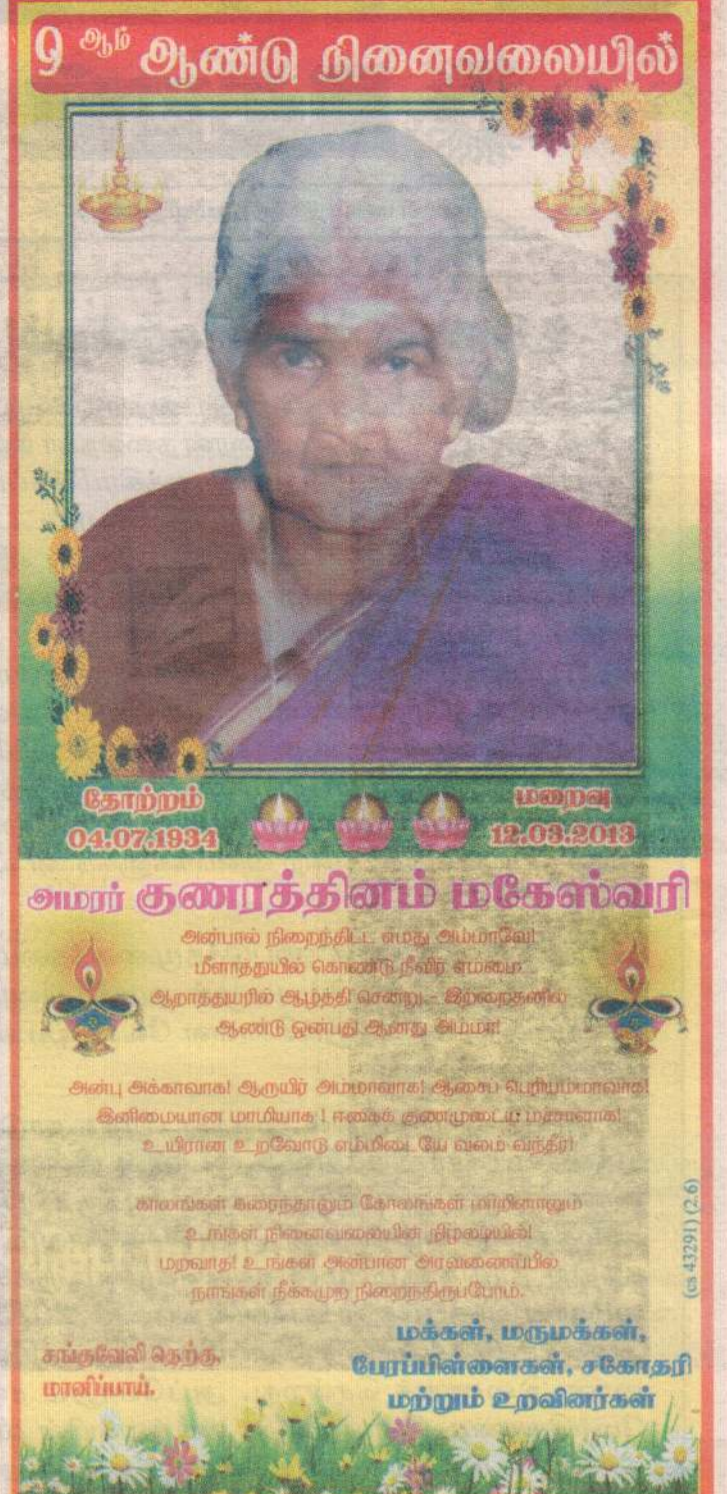 9 ஆம் ஆண்டு நினைவலையில்
தோற்றம்
04.07.1934
மறைவு
12.03.2013
அமரர் குணரத்தினம் மகேஸ்வரி
அன்பால் நிறைந்திட்ட எமது அம்மாவே!
மீளாத்துயில் கொண்டு நீவிர் எம்மை
ஆறாத்துயரில் ஆழ்த்தி சென்று - இற்றைதனில்
ஆண்டு ஒன்பது ஆனது அம்மா!
அன்பு அக்காவாக! ஆருயிர் அம்மாவாக! ஆசைப் பெரியம்மாவாக!
இனிமையான மாமியாக ! ஈகைக் குணமுடைய மச்சாளாக!
உயிரான உறவோடு எம்மிடையே வலம் வந்தீர்!
காலங்கள் கரைந்தாலும் கோலங்கள் மாறினாலும்
உங்கள் நினைவலையின் நிழலடியில்!
மறவாத! உங்கள் அன்பான அரவணைப்பில்
நாங்கள் நீக்கமுற நிறைந்திருப்போம்.
சங்குவேலி தெற்கு,
மானிப்பாய்.
மக்கள், மருமக்கள்,
பேரப்பிள்ளைகள், சகோதரி
மற்றும் உறவினர்கள்
(cs 43291) (2.6)